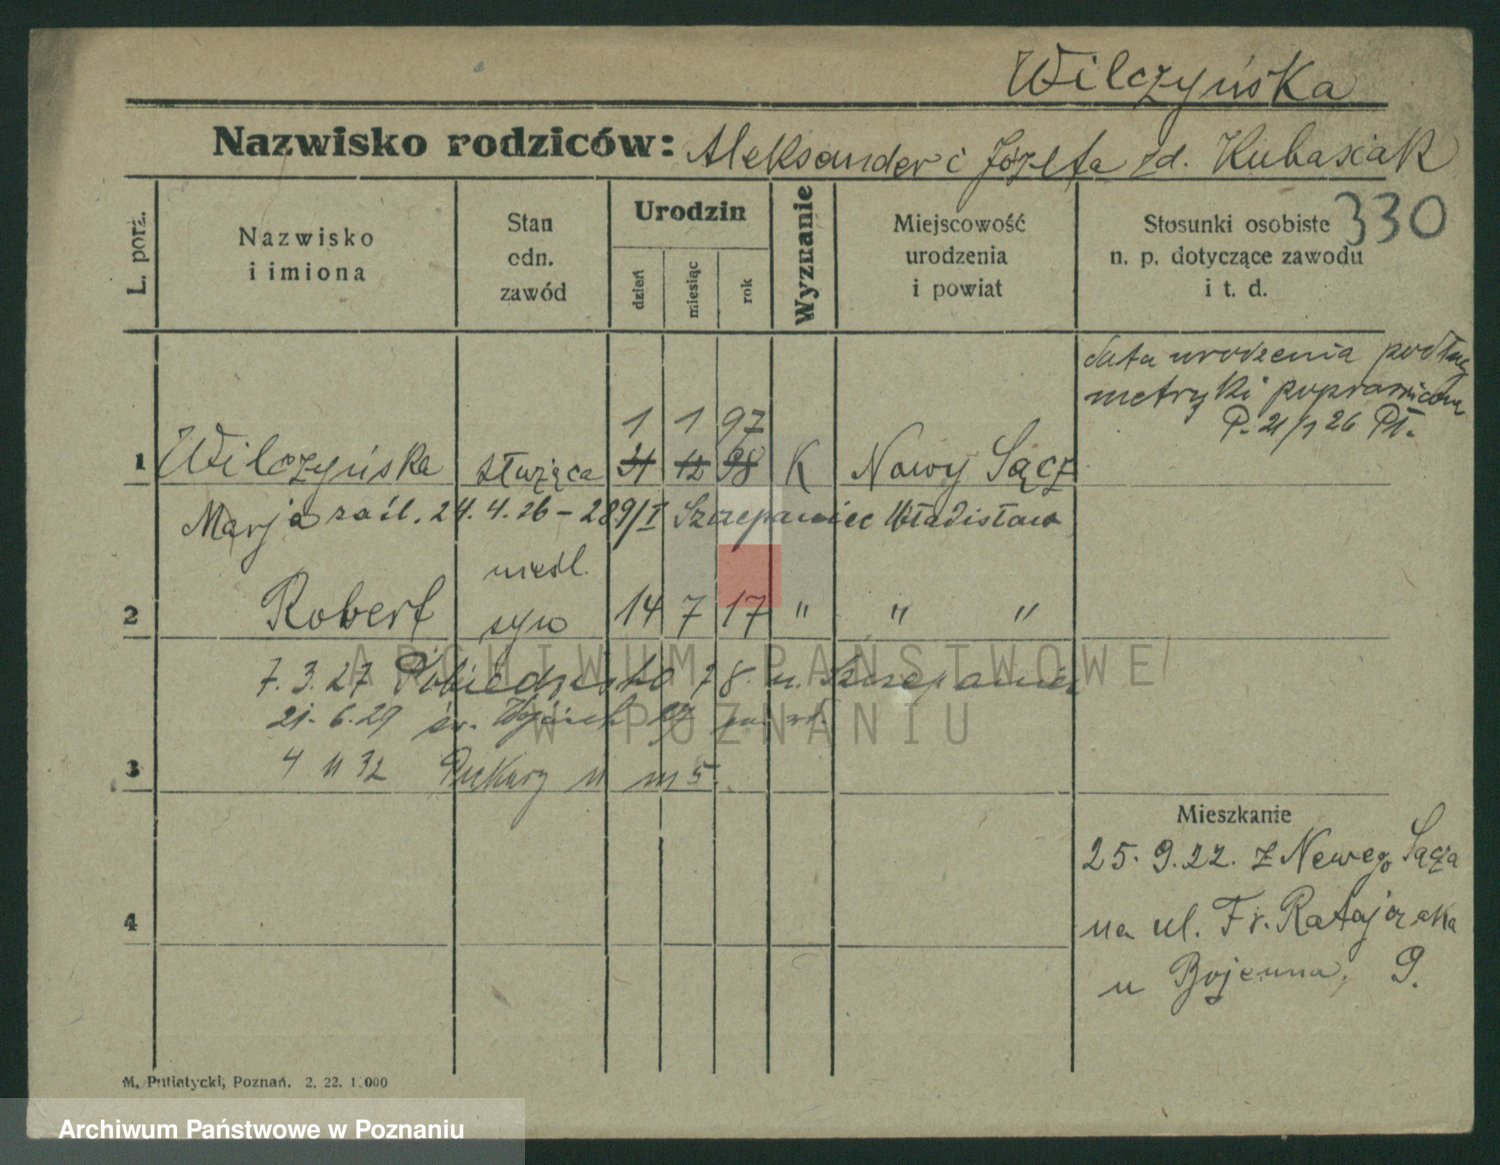 Wilczyńska
Nazwisko rodziców: Aleksander i Józefa zd. Kubasiak
330
L. porz.
Nazwisko i imiona
Stan odn. zawód
Urodzin
dzień
miesiąc
rok
Wyznanie
Miejscowość urodzenia i powiat
Stosunki osobiste n. p. dotyczące zawodu i t. d.
data urodzenia podług
metryki poprawiona
P. 21/1 26
1 1 97
1 Wilczyńska służąca 31 12 98 K Nowy Sącz
Marja zaśl. 24.4.26 - 289/I Szczepaniec Władisław
nieśl.
2 Robert syn 14 7 17 " " "
7.3.27 8. u. Szczepaniec
21.6.29 św. Wojciech
3 4 11 32 m 5.
Mieszkanie
25.9.22. z Nowego Sącza
na ul. Fr. Ratajczaka
u 9.
4
M. Putiatycki, Poznań. 2. 22. 1.000
ARCHIWUM PAŃSTWOWE
W POZNANIU
Archiwum Państwowe w Poznaniu